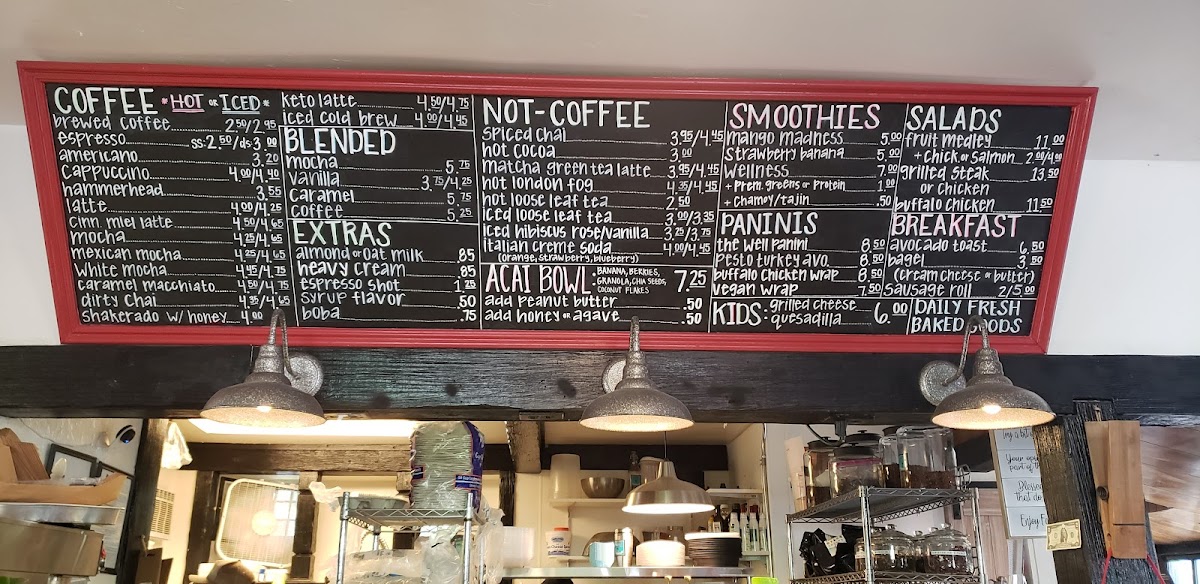 COFFEE *HOT OR ICED*
brewed coffee 2.50/2.95
espresso ss:2.50/ds:3.00
americano 3.20
cappuccino 4.00/4.40
hammerhead 3.55
latte 4.00/4.25
cinn. miel latte 4.50/4.65
mocha 4.25/4.65
mexican mocha 4.25/4.65
white mocha 4.45/4.75
caramel macchiato 4.50/4.75
dirty chai 4.35/4.65
shakerado w/ honey 4.00
keto latte 4.50/4.75
iced cold brew 4.00/4.45
BLENDED
mocha 5.75
vanilla 3.75/4.25
caramel 5.75
coffee 5.25
EXTRAS
almond or oat milk .85
heavy cream .85
espresso shot 1.25
syrup flavor .50
boba .75
NOT-COFFEE
spiced chai 3.95/4.45
hot cocoa 3.00
matcha green tea latte 3.95/4.45
hot london fog 4.35/4.45
hot loose leaf tea 2.50
iced loose leaf tea 3.00/3.35
iced hibiscus rose/vanilla 3.25/3.75
italian creme soda 4.00/4.45
(orange, strawberry, blueberry)
ACAI BOWL: BANANA, BERRIES, GRANOLA, CHIA SEEDS, COCONUT FLAKES 7.25
add peanut butter .50
add honey or agave .50
SMOOTHIES
mango madness 5.00
strawberry banana 5.00
wellness 7.00
+ prem. greens or protein 1.00
+ chamoy/tajin .50
PANINIS
the well panini 8.50
pesto turkey avo. 8.50
buffalo chicken wrap 8.50
vegan wrap 7.50
KIDS: grilled cheese
quesadilla 6.00
SALADS
fruit medley 11.00
+ chick or salmon 2.00/4.00
grilled steak 13.50
or chicken
buffalo chicken 11.50
BREAKFAST
avocado toast 6.50
bagel 3.50
(cream cheese or butter)
sausage roll 2/5.00
DAILY FRESH
BAKED GOODS